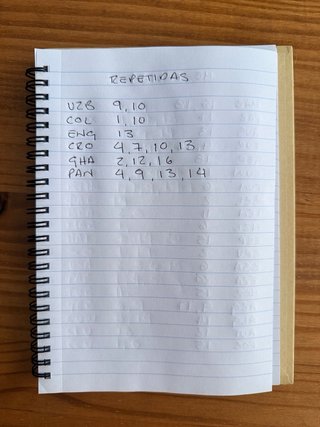 REPETIDAS
UZB 9, 10
COL 1, 10
ENG 13
CRO 4, 7, 10, 13
GHA 2, 12, 16
PAN 4, 9, 13, 14